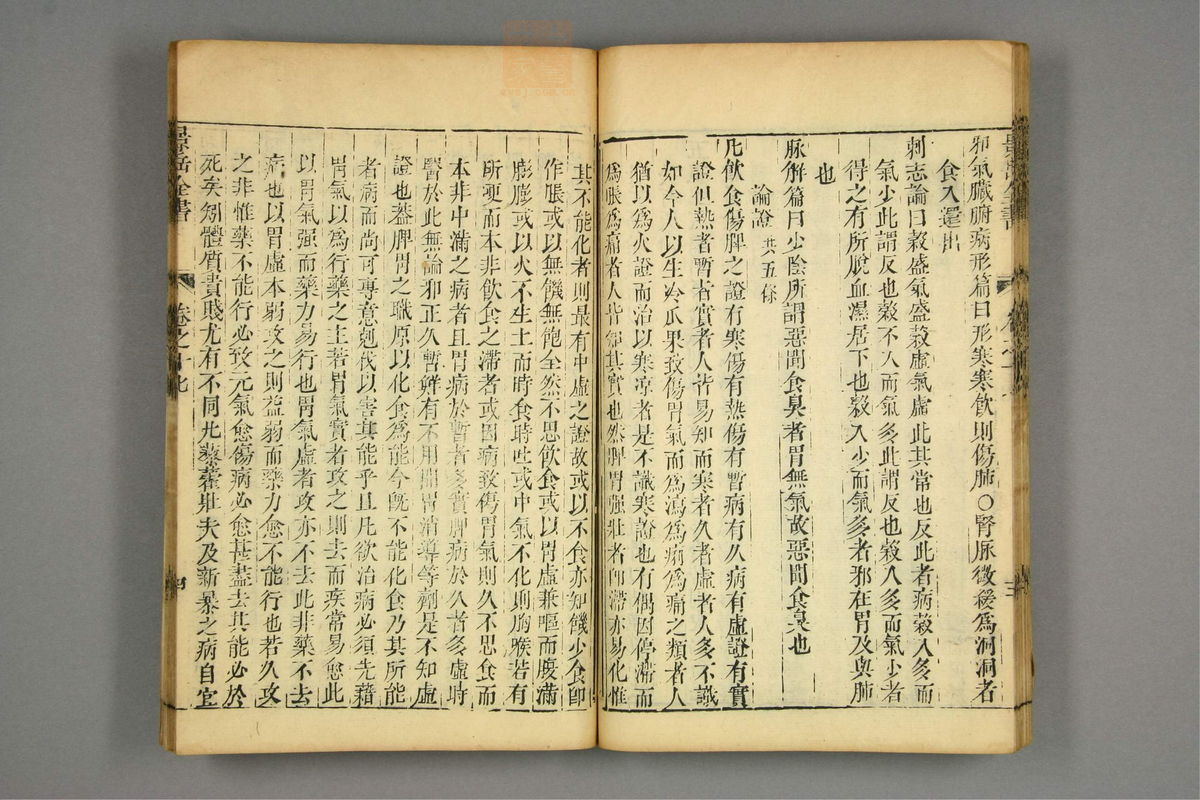 邪氣臟腑病形篇曰形寒寒飲則傷肺○腎脉微緩爲洞洞者
食入還出
刺志論曰穀盛氣盛穀虛氣虛此其常也反此者病穀入多而
氣少此謂反也穀不入而氣多此謂反也穀入多而氣少者
得之有所脫血濕居下也穀入少而氣多者邪在胃及與肺
也
脉解篇曰少陰所謂惡聞食臭者胃無氣故惡聞食臭也
論證 共五條
凡飲食傷脾之證有寒傷有熱傷有暫病有久病有虛證有實
證但熱者暫者實者人皆易知而寒者久者虛者人多不識
如今人以生冷瓜果致傷胃氣而爲瀉爲痢爲痛之類者人
猶以爲火證而治以寒凉者是不識寒證也有偶因停滯而
爲脹爲痛者人皆知其實也然脾胃强壯者卽滯亦易化惟
其不能化者則最有中虛之證故或以不食亦知饑少食卽
作脹或以無饑無飽全然不思飲食或以胃虛兼嘔而腹滿
膨膨或以火不生土而時食時吐或中氣不化則胸喉若有
所哽而本非飲食之滯者或因病致傷胃氣則久不思食而
本非中滿之病者且胃病於暫者多實脾病於久者多虛時
醫於此無論邪正久暫鮮有不用開胃消導等劑是不知虛
證也蓋脾胃之職原以化食爲能今旣不能化食乃其所能
者病而尚可專意剋伐以害其能乎且凡欲治病必須先藉
胃氣以爲行藥之主若胃氣實者攻之則去而疾常易愈此
以胃氣强而藥力易行也胃氣虛者攻亦不去此非藥不去
病也以胃虛本弱攻之則益弱而藥力愈不能行也若久攻
之非惟藥不能行必致元氣愈傷病必愈甚盡去其能必於
死矣矧體質貴賤尤有不同凡藜藿壯夫及新暴之病自宜
景岳全書
卷之十七